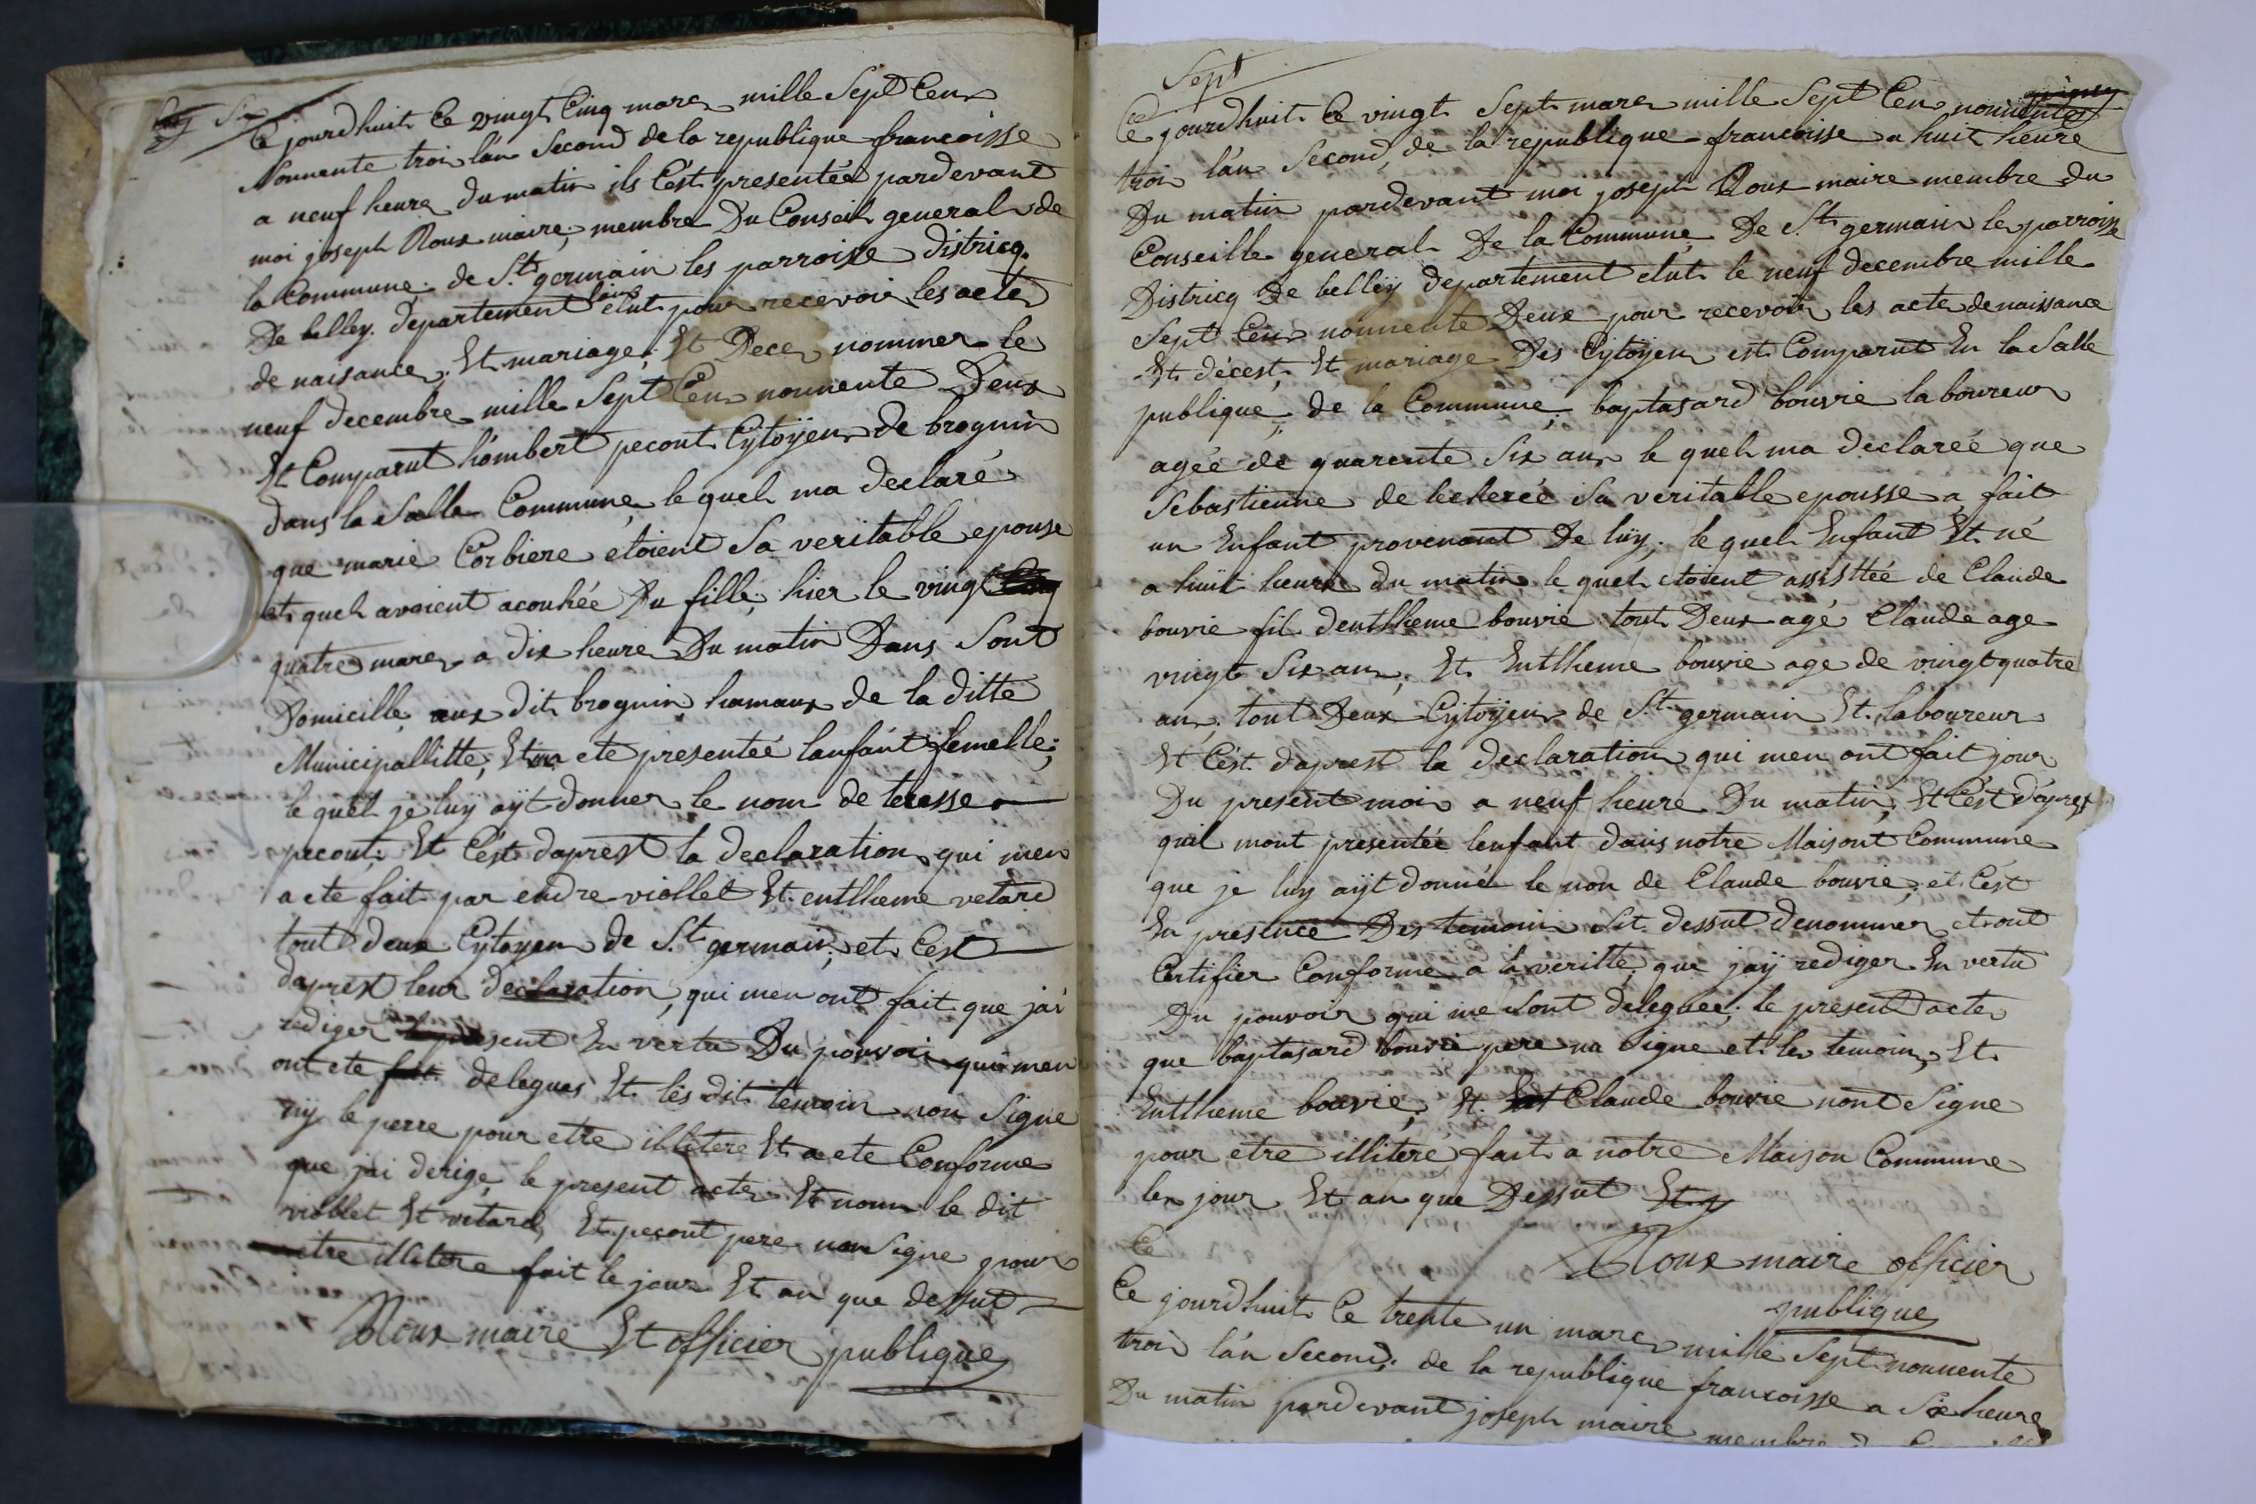 Six
Ce jourdhuit Ce vingt Cinq mars mille Sept Cens
Nonnente troi lán Second de la republique francoisse
a neuf heure du matin ils Cést presentée pardevant
moi joseph Roux maire, membre Du Conseil general de
la Commune de St. germain les parroisse districq
De belley. departement elut pour recevoir les actes
de naisance, Et mariage, Et Deces nommer le
neuf decembre mille Sept Cen nonnente Deux
Et Comparut hómbert pecout Cytoÿen de brognin
dans la Salle Commune le quel ma declaré
que marie Corbiere etoient Sa veritable epouse
et quel avoient acouhée Du fille, hier le vingt
quatre mars a dix heure Du matin Dans Sont
Domicille aux dit brognin hamaux de la ditte
Municipallitte, Et ete presentée lanfant femelle;
le quel je luy aÿt donner le nom de teresse
pecout, Et Cést daprest la declaration qui men
a ete fait par endre viollet Et. entlheme vetard
tout deux Cytoyen de St. germain, et Cest
daprest leur declaration, qui men ont fait que jai
rediger le present En vertu Du pouvoir qui men
ont ete fait delegues Et les dit temoin non Signe
ny le perre pour etre illitere Et a ete Conforme
que jai derige, le present acte Et nous le dit
viollet Et vetard, Et pecout pere non Signe pour
etre illitere fait le jour Et an que dessut
Roux maire Et officier publique
Sept
Ce jourdhuit Ce vingt Sept mars mille Sept Cen nonnente
troi lán Second, de la republique francoisse a huit heure
Du matin pardevant moi joseph Roux maire membre du
Conseille general De la Commune De St. germain les parroisse
Districq De belleÿ departement elut le neuf decembre mille
Sept Cen nonnente Deux pour recevoir les acte de naissance
Et décest, Et mariage Des Cytoÿen est Comparut En la Salle
publique, de la Commune, baptasard bouvie laboureur
agée de quarente Six ans le quel ma declarée que
Sebastienne de lecherée Sa veritable epousse a fait
un Enfant provenant De luÿ. le quel Enfant Et né
a huit heure du matin le quel etoient assisttée de Claude
bouvie fil dentlheme bouvie tout Deux agé Claude age
vingt Six an, Et Entlheme bouvie age de vingt quatre
an, tout Deux Cytoÿen de St. germain Et. laboureur
Et Cést daprest la declaration qui men ont fait jour
Du present moi a neuf heure Du matin, Et Cést dáprest
quil mont presentée lenfant dans notre Maisont Commune
que je luy aÿt donné le non de Claude bouvie, et Cést
En presence Des temoin Sit. dessut denommer et ont
Certifier Conforme a la veritte que jaÿ rediger En vertu
Du pouvoir qui me Sont deleguée, le present acte
que baptasard bouvie pere na Signe et les temoin, Et
Entlheme bouvie, Et. Claude bouvie nont Signe
pour etre illiteré fait a notre Maison Commune
les jour Et an que Dessut Et
Roux maire officier
publique
Ce
Ce jourdhuit Ce trente un mars mille Sept nonnente
troi lán Second, de la republique francoisse a Six heure
Du matin pardevant joseph maire membre